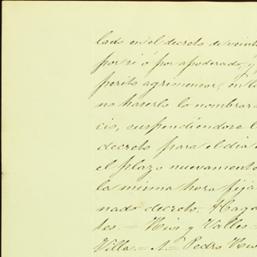 lado en el decreto de veint
por sí ó por apoderado, y
perito agrimensor, en la
no hacerlo lo nombrar
cio, suspendiendose l
decreto para el dia
el plazo nuevamente
la misma hora fija
nado decreto. Haga
tes = Rius y Valles =
Villa. = Pedro Rius